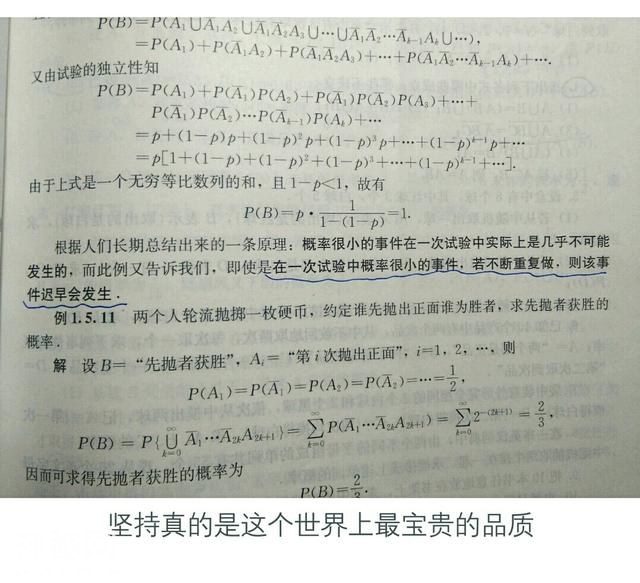 P(B)=P(A₁⋃A̅₁A₂⋃A̅₁A̅₂A₃⋃⋯⋃A̅₁A̅₂⋯A̅ₖ₋₁Aₖ⋃⋯),
=P(A₁)+P(A̅₁A₂)+P(A̅₁A̅₂A₃)+⋯+P(A̅₁A̅₂⋯A̅ₖ₋₁Aₖ)+⋯.
又由试验的独立性知
P(B)=P(A₁)+P(A̅₁)P(A₂)+P(A̅₁)P(A̅₂)P(A₃)+⋯+
P(A̅₁)P(A̅₂)⋯P(A̅ₖ₋₁)P(Aₖ)+⋯
=p+(1−p)p+(1−p)²p+(1−p)³p+⋯+(1−p)ᵏ⁻¹p+⋯
=p[1+(1−p)+(1−p)²+(1−p)³+⋯+(1−p)ᵏ⁻¹+⋯].
由于上式是一个无穷等比数列的和，且 1−p<1，故有
P(B)=p·1/(1−(1−p))=1.
根据人们长期总结出来的一条原理：概率很小的事件在一次试验中实际上是几乎不可能
发生的，而此例又告诉我们，即使是在一次试验中概率很小的事件，若不断重复做，则该事
件迟早会发生．
例 1.5.11 两个人轮流抛掷一枚硬币，约定谁先抛出正面谁为胜者，求先抛者获胜的
概率．
解 设 B=“先抛者获胜”，Aᵢ=“第 i 次抛出正面”，i=1，2，⋯，则
P(A₁)=P(A̅₁)=P(A₂)=P(A̅₂)=⋯=1/2,
P(B)=P{⋃ₖ₌₀^∞ A̅₁⋯A̅₂ₖA₂ₖ₊₁}=∑ₖ₌₀^∞ P(A̅₁⋯A̅₂ₖA₂ₖ₊₁)=∑ₖ₌₀^∞ 2⁻⁽²ᵏ⁺¹⁾=2/3.
因而可求得先抛者获胜的概率为
P(B)=2/3.
坚持真的是这个世界上最宝贵的品质